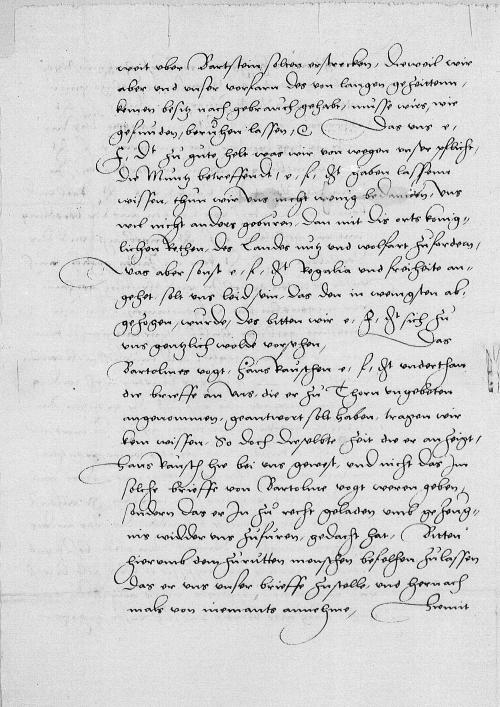 weit vber Bartstein solten erstrecken, dieweil wir
aber vnd vnser vorfarn des von langen gezeittenn,
keinen besitz nach gebrauch gehabt, musse wirs, wie
gefunden, beruhen lassen, Das vns e,
f, Dt zu gute helt was wir von wegen vnser pflicht,
die Muntz betreffendt, e, f, Dt haben lassenn
wissen, thun wir vns nicht wenig bedancken, vns
wil nicht anders geburen, dan mit dis orts konig-
lichen Rethen, des Landes nutz vnd wolfart zufordern,
was aber sonst e, f, Dt Regalia vnd freiheite an-
gehet, solt vns leid sein, das den in wenigsten ab-
gezogen, wurde, des bitten wir e, f, Dt sich zu
vns gentzlich wolde vorsehen, Das
Bartolmes vogt, Hans Rauschen e, f, Dt vnderthan
die brieffe an vns, die er zu Thorn vngebeten
angenommen, geantwort solt haben, tragen wir
kein wissen, So doch dieselbte zeit die er anzeigt,
Hans Rausch hie bei vns gewest, vnd nicht das Im
solche brieffe von Bartolme vogt weren geben,
sondern das er In zu recht geladen vmb gezeug-
nis widder vns zufuren, gedacht hat, Bitten
hierumb dem zurutten menschen befelhen zulassen
das er vns vnser brieffe zustelle, vnd hernach
mals von niemants annehme, Hiemit